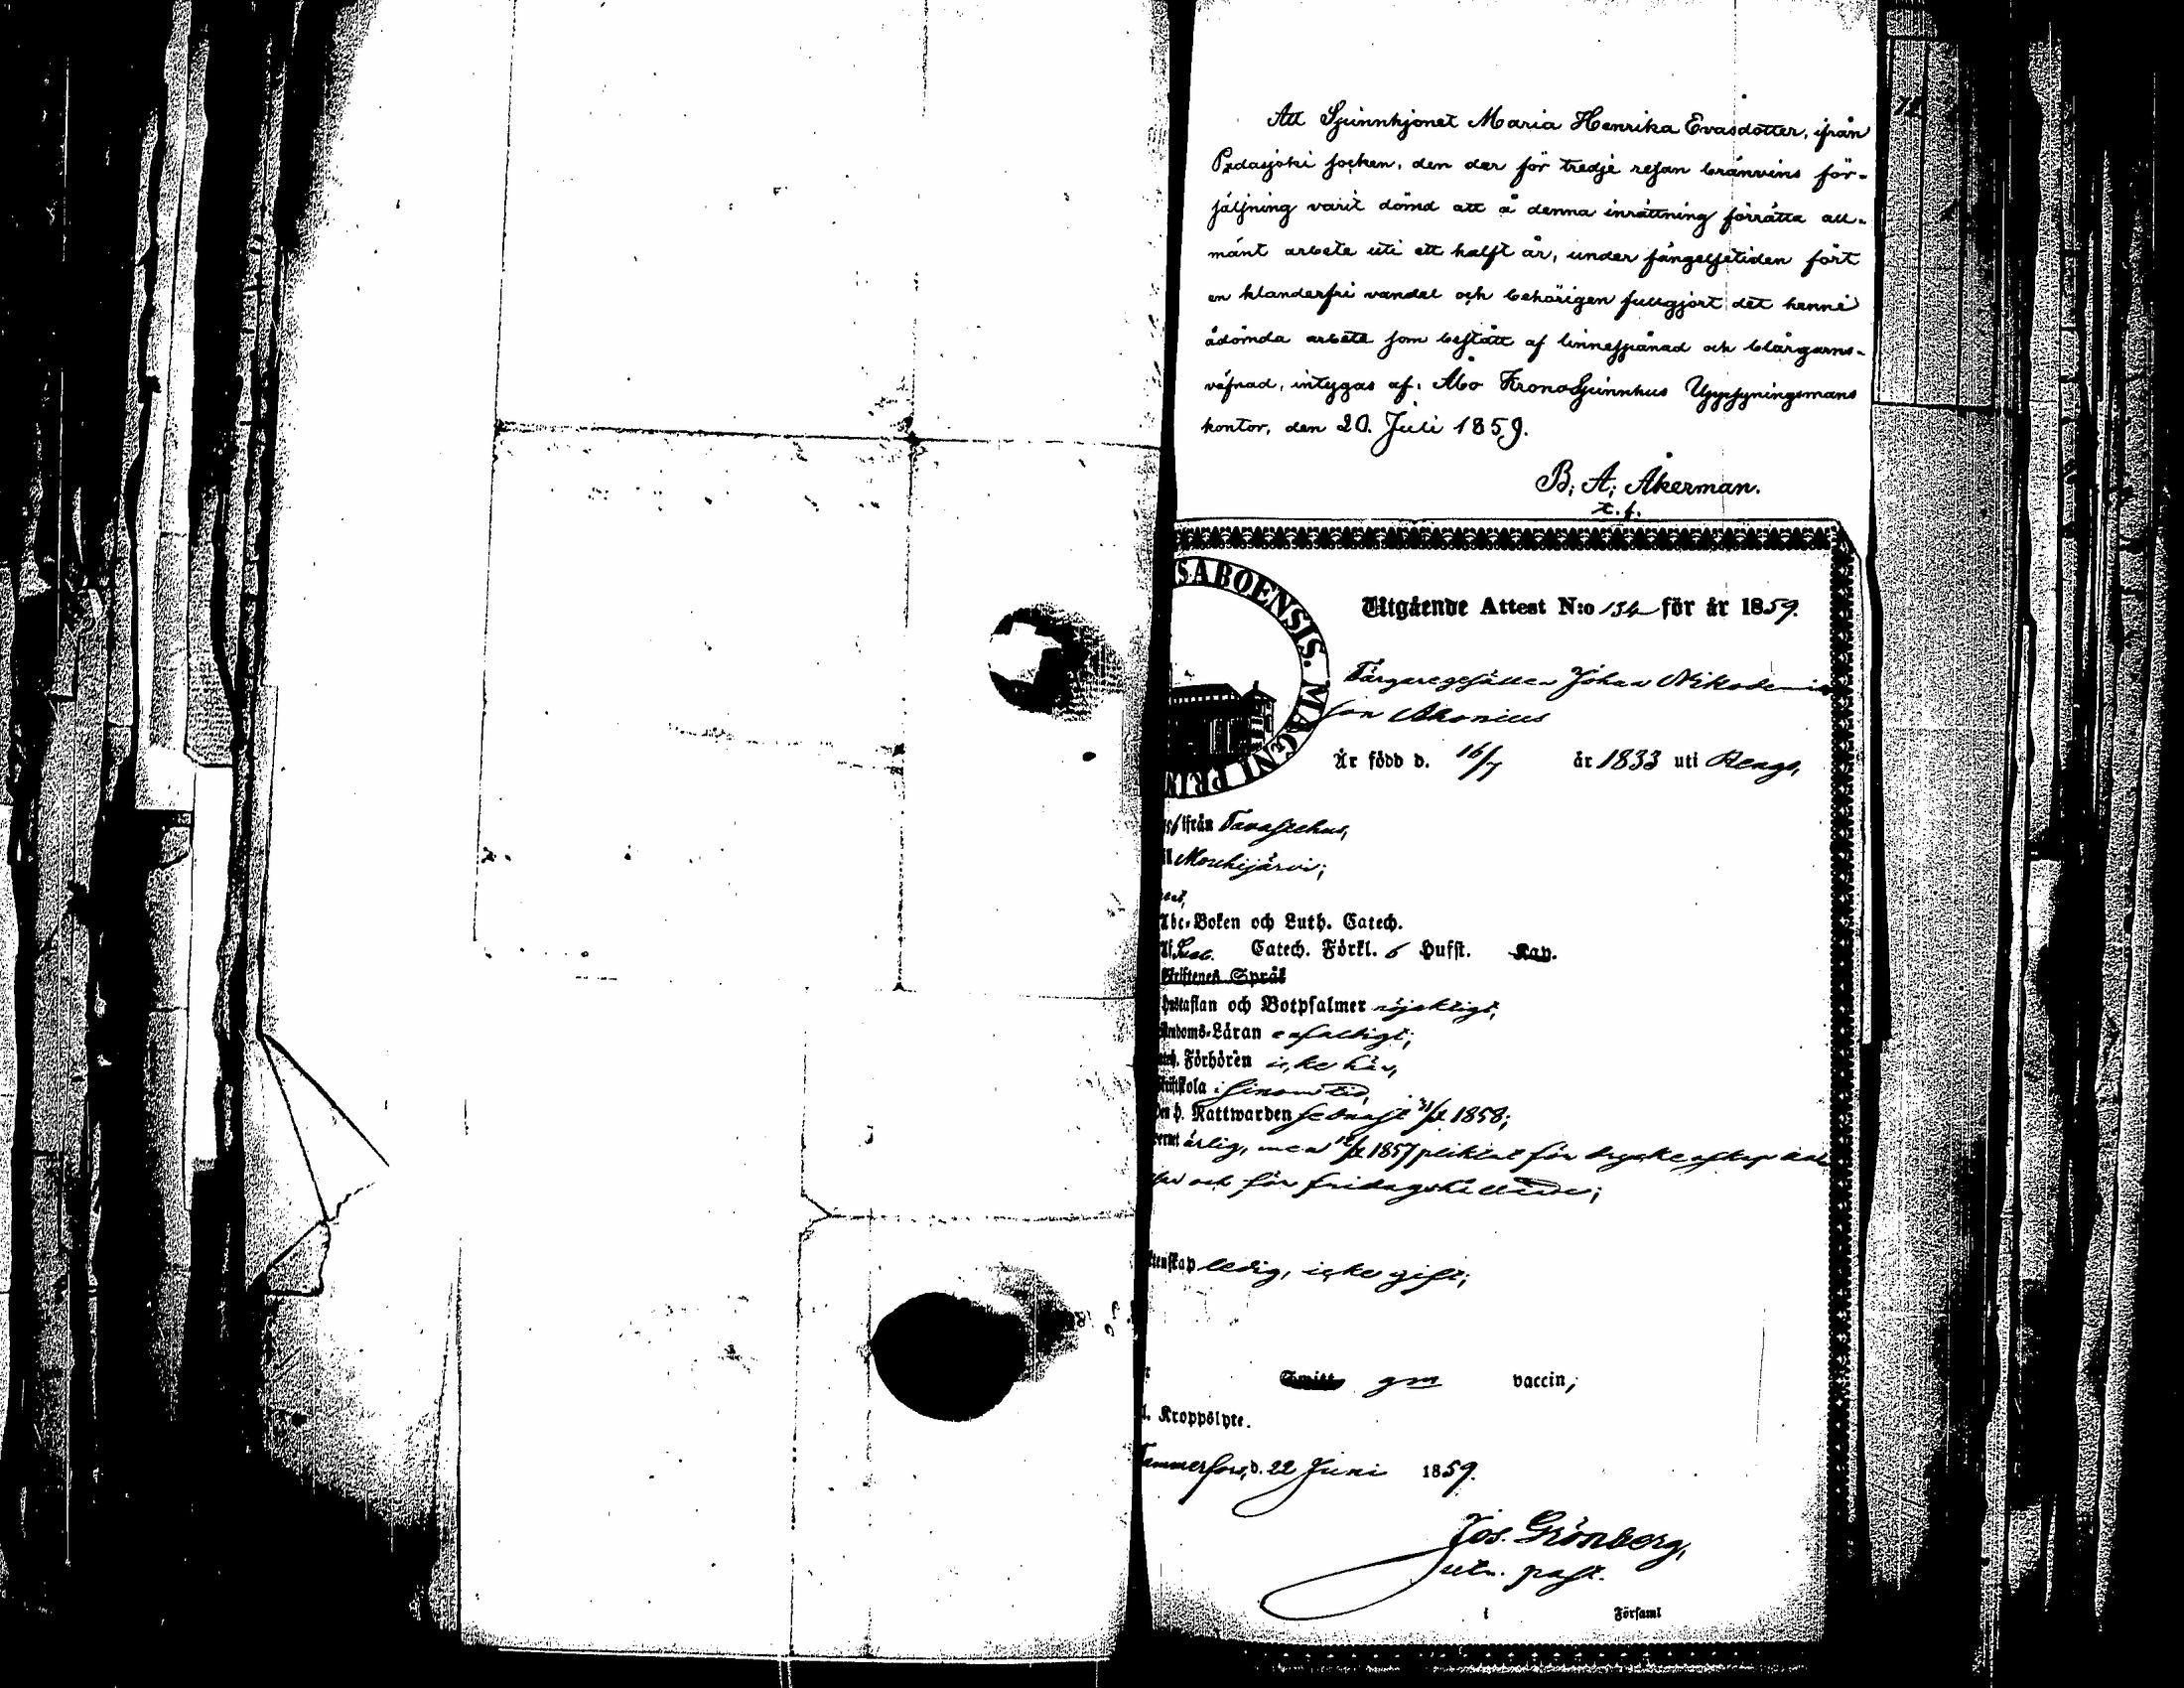 Att Spinnhjonet Maria Henrika Evasdotter, ifrån
Padasjoki socken, den der för tredje resan bränvins för-
säljning varit dömd att å denna inrättning förrätta all-
mänt arbete uti ett halft år, under fängelsetiden fört
en klanderfri vandel och behörigen fullgjort det henne
ådömda arbete som bestått af linnespånad och blårgarns-
väfnad, intygas af: Åbo KronoSpinnhus Uppsyningsmans
kontor, den 20. Juli 1859.
B. A. Åkerman.
t.f.
SABOENSIS. MAGNI PRIN
Utgående Attest N:o 134 för år 1859.
Färgaregesällen Johan Nikodemi
son
Är född d. 16/7 år 1833 uti Rengo,
ifrån Tavastehus,
Mouhijärvi;
Abc-Boken och Luth. Catech.
Catech. Förkl. 6 Hufst. Kap.
Språk
taflan och Botpsalmer nöjaktigt,
doms-Läran enfaldigt;
Förhören icke här,
skola i sinom tid,
h. Nattwarden senast 31/ 1858;
ärlig, men 12/ 1857 pliktat för
och för
tenskap ledig, icke gift;
gm vaccin,
Kroppslyte.
Tammerfors, d. 22 Juni 1859.
Jos. Grönberg,
past.
i Församl